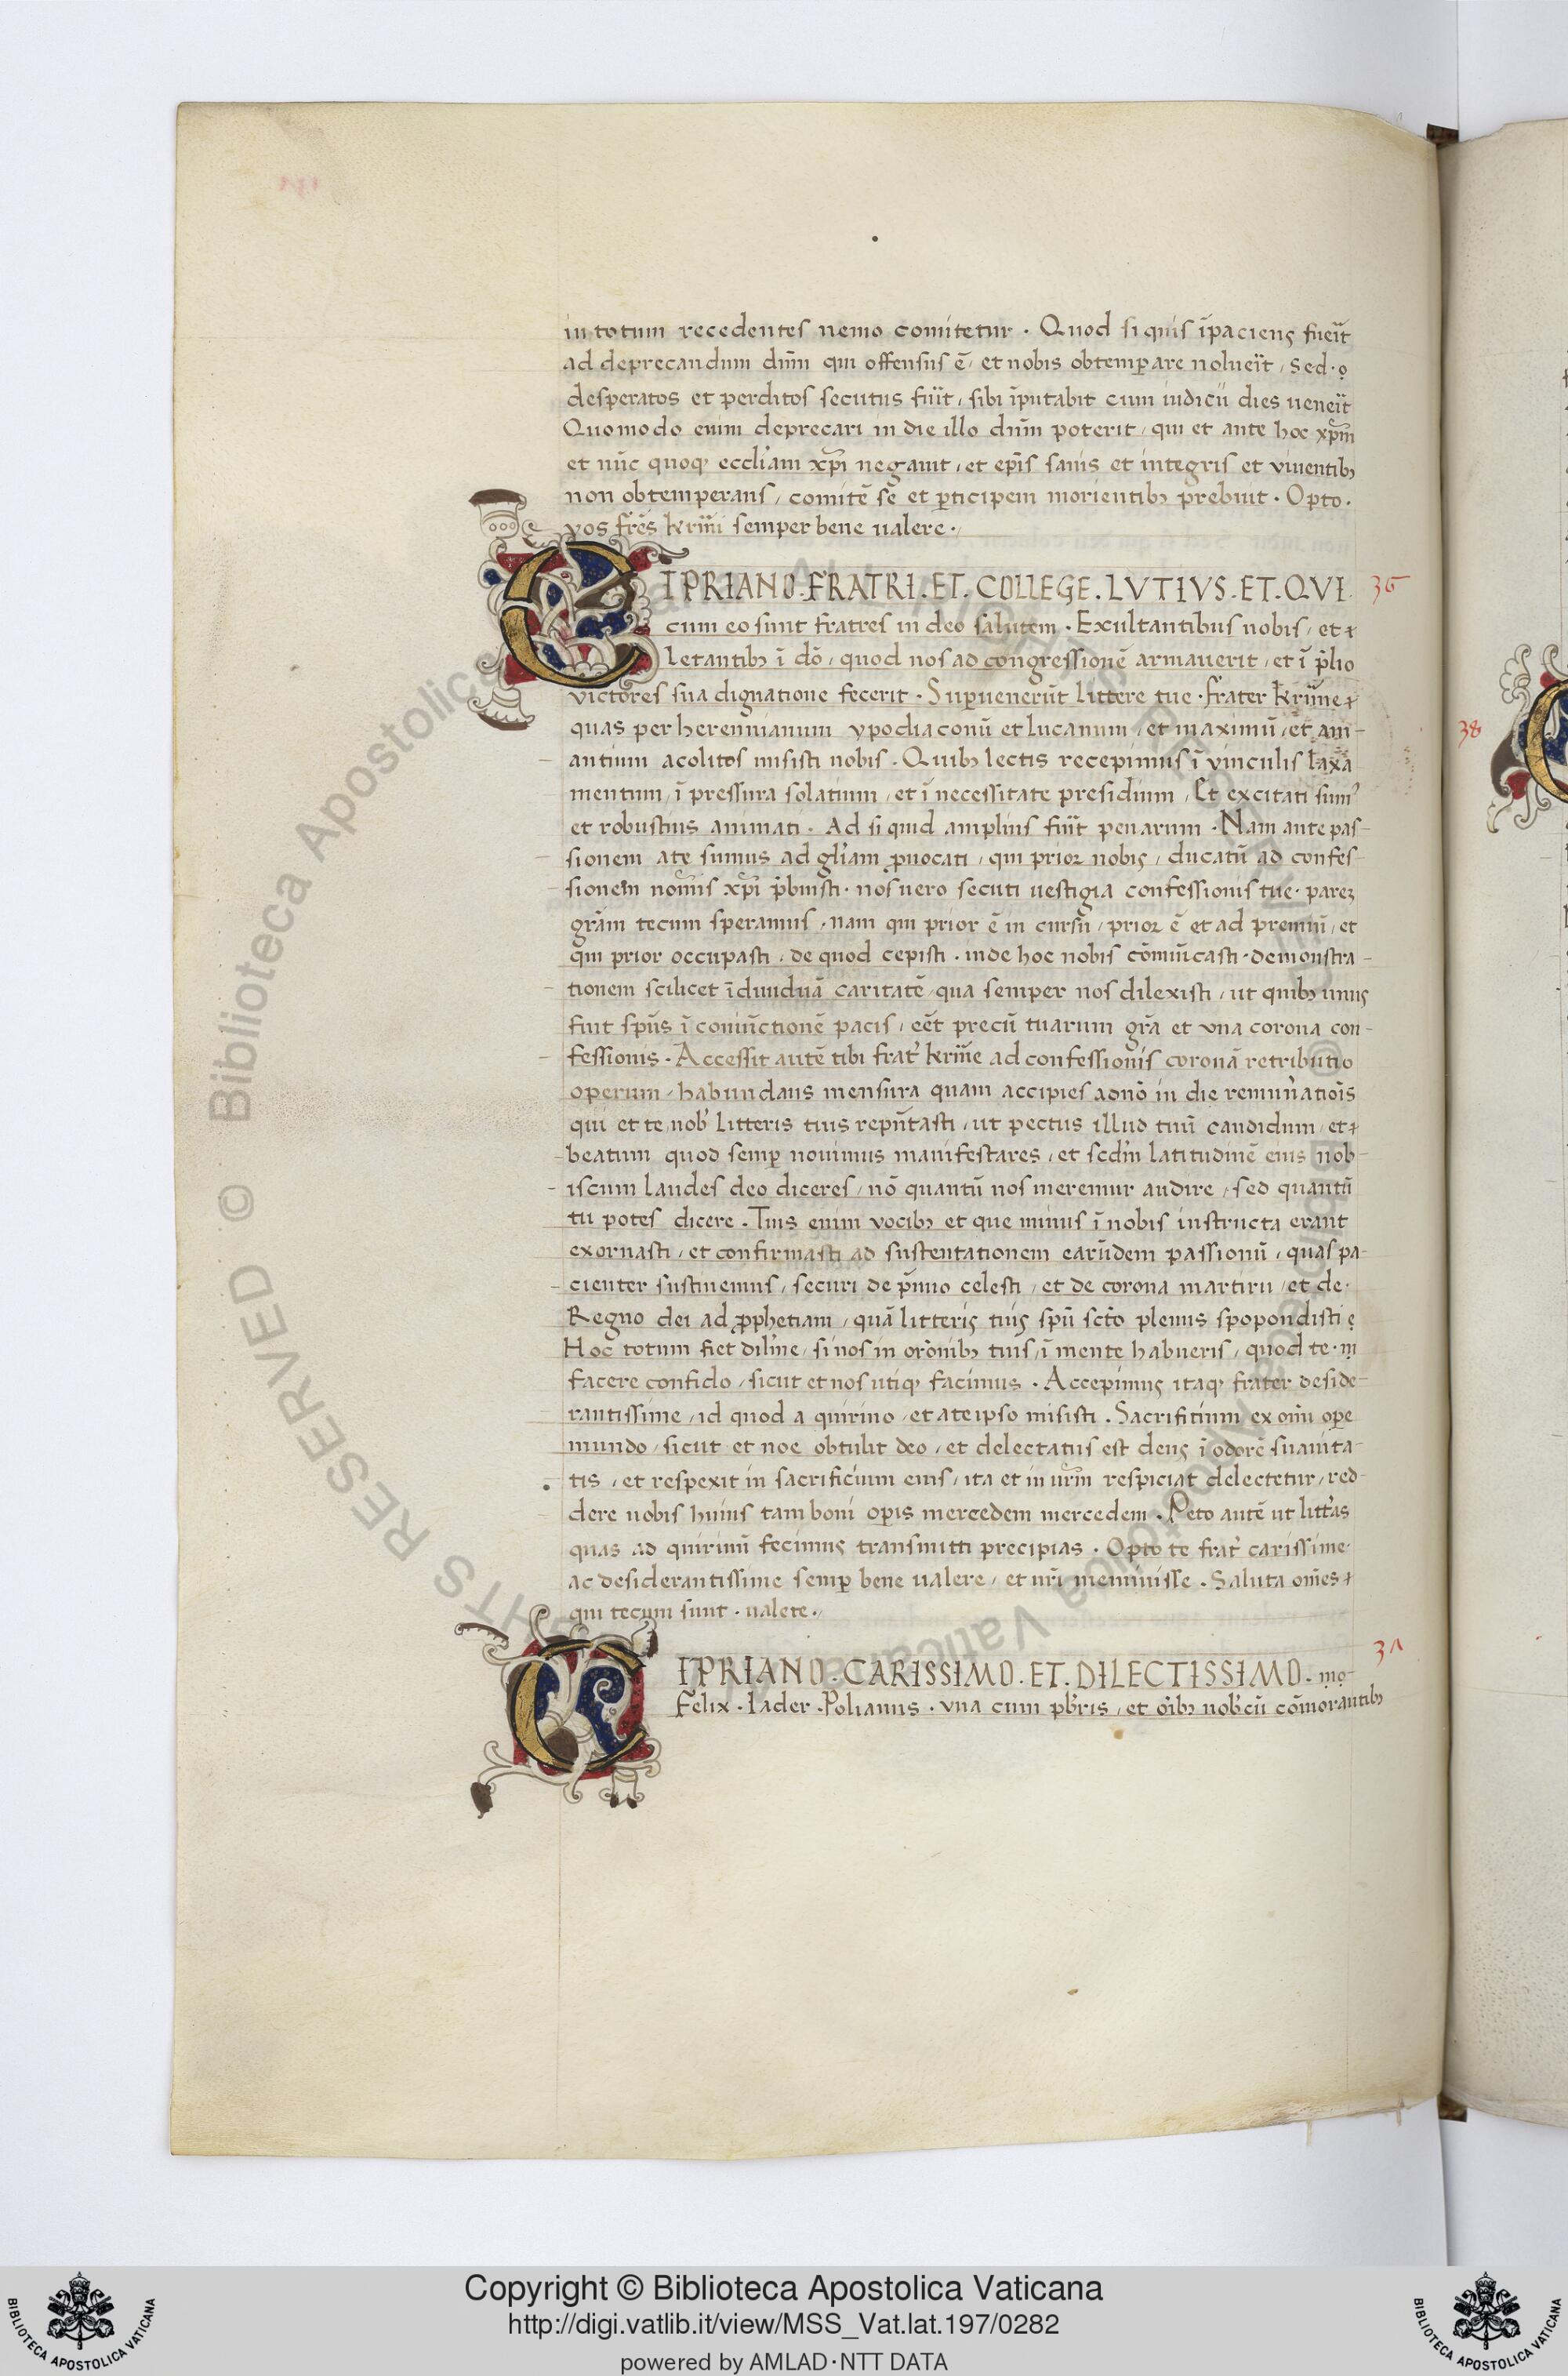 in totum recedentes nemo comitetur . Quod si quis īpaciens fueīt
ad deprecandum dn̄m qui offensus ē, et nobis obtemꝑare nolueīt, sed . o
desperatos et perditos secutus fuīt, sibi īputabit cum iudicii dies ueneīt
Quomodo enim deprecari in die illo dn̄m poterit, qui et ante hoc xp̄m
et nūc quoq, eccli̅am xp̄i negauit, et ep̄is sanis et integris et viuentibꝫ
non obtemperans, comitē se et ꝑticipem morientibꝫ prebuit . Opto .
vos fr̄es kr̄imi semper bene ualere .
CIPRIANO . FRATRI . ET . COLLEGE . LVTIVS . ET . QVI 36
cum eo sunt fratres in deo salutem . Exultantibus nobis, et
Letantibꝫ ī dō, quod nos ad congressionē armauerit, et ī p̄lio
victores sua dignatione fecerit . Suꝑuenerūt littere tue . frater kr̄ime
quas per herennianum ypodiaconū et lucanum, et maximū, et am-
antium acolitos misisti nobis . Quibꝫ lectis recepimus ī vinculis laxa
mentum, ī pressura solatium, et ī necessitate presidium, Et excitati sum᾽
et robustius animati . Ad si quid amplius fuīt penarum . Nam ante pas-
sionem ate sumus ad gl̄iam ꝓuocati, qui prior nobis, ducatū ad confes-
sionem nom̄is xp̄i p̄buisti . nos uero secuti uestigia confessionis tue . parez
gr̄am tecum speramus . nam qui prior ē in cursū, prior ē et ad premiū, et
qui prior occupasti, de quod cepisti . inde hoc nobis cōmūcasti . demonstra-
tionem scilicet īduiduā caritatē qua semper nos dilexisti, ut quibꝫ unus
fuit sp̄us ī coniūctionē pacis, eēt precū tuarum gr̄a et vna corona con-
fessionis . Accessit autē tibi frat᾽ kr̄ime ad confessionis coronā retributio
operum, habundans mensura quam accipies adnō in die remun̄atiōis
qui et te nob᾽ litteris tuis rep̄ntasti, ut pectus illud tuū candidum, et
beatum quod semꝑ nouimus manifestares, et scd̄m latitudinē eius nob-
iscum laudes deo diceres, nō quantū nos meremur audire, sed quantū
tu potes dicere . Tuis enim vocibꝫ et que minus ī nobis instructa erant
exornasti, et confirmasti ad sustentationem earūdem passionū, quas pa-
cienter sustinemus, securi de p̄mio celesti, et de corona martirii, et de .
Regno dei ad ꝓphetiam, quā litteris tuis sp̄u sc̄to plenus spopondisti
Hoc totum fiet dil̄me, si nos in or̄onibꝫ tuis, ī mente habueris, quod te . m
facere confido, sicut et nos utiq, facimus . Accepimus itaq, frater deside-
rantissime, id quod a quirino, et ate ipso misisti . Sacrifitium ex om̄i oꝑe
mundo, sicut et noe obtulit deo, et delectatus est deus ī odorē suauita-
tis, et respexit in sacrificium eius, ita et in ur̄m respiciat delectetur, red-
dere nobis huius tam boni oꝑis mercedem mercedem . Peto autē ut litt᾽as
quas ad quirinū fecimus transmitti precipias . Opto te frat᾽ carissime
ac desiderantissime semꝑ bene ualere, et nr̄i meminisse . Saluta om̄es
qui tecum sunt . ualete .
CIPRIANO . CARISSIMO . ET . DILECTISSIMO . 37
Felix . Iader . Polianus . vna cum pb̄ris, et oībꝫ nob᾽cū cōmorantibꝫ
38
© Biblioteca Apostolica Vaticana
ALL RIGHTS RESERVED
Copyright © Biblioteca Apostolica Vaticana
http://digi.vatlib.it/view/MSS_Vat.lat.197/0282
powered by AMLAD·NTT DATA
BIBLIOTECA APOSTOLICA VATICANA
BIBLIOTECA APOSTOLICA VATICANA